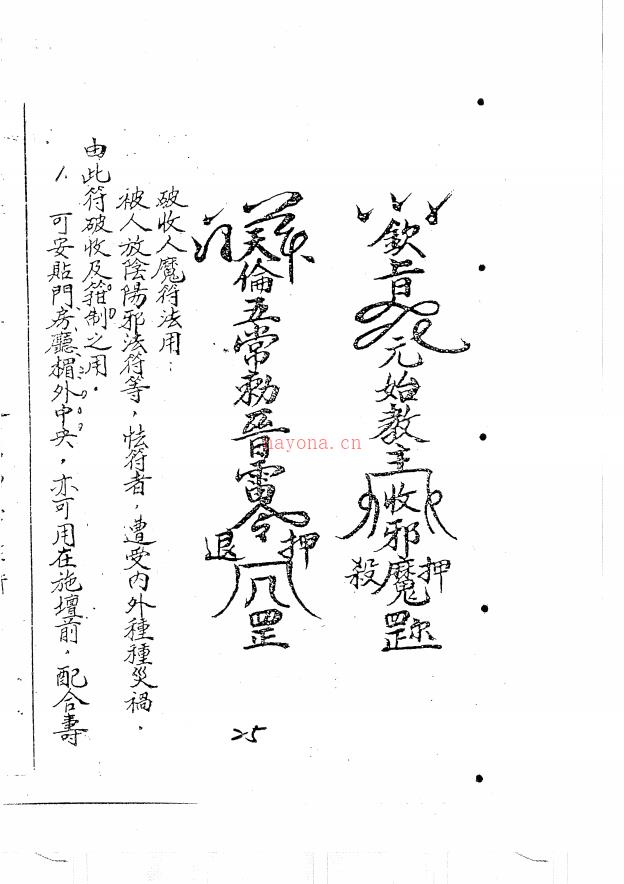 欽旨元始教主收邪魔
殺
押
罡
天倫五常勅晉雷令
退
押
罡
破收人魔符法用：
被人放陰陽邪法符等，怯符者，遭受內外種種災禍，
由此符破收及箝制之用。
1. 可安貼門房廳楣外中央，亦可用在施壇前，配合壽
25
nayona.cn